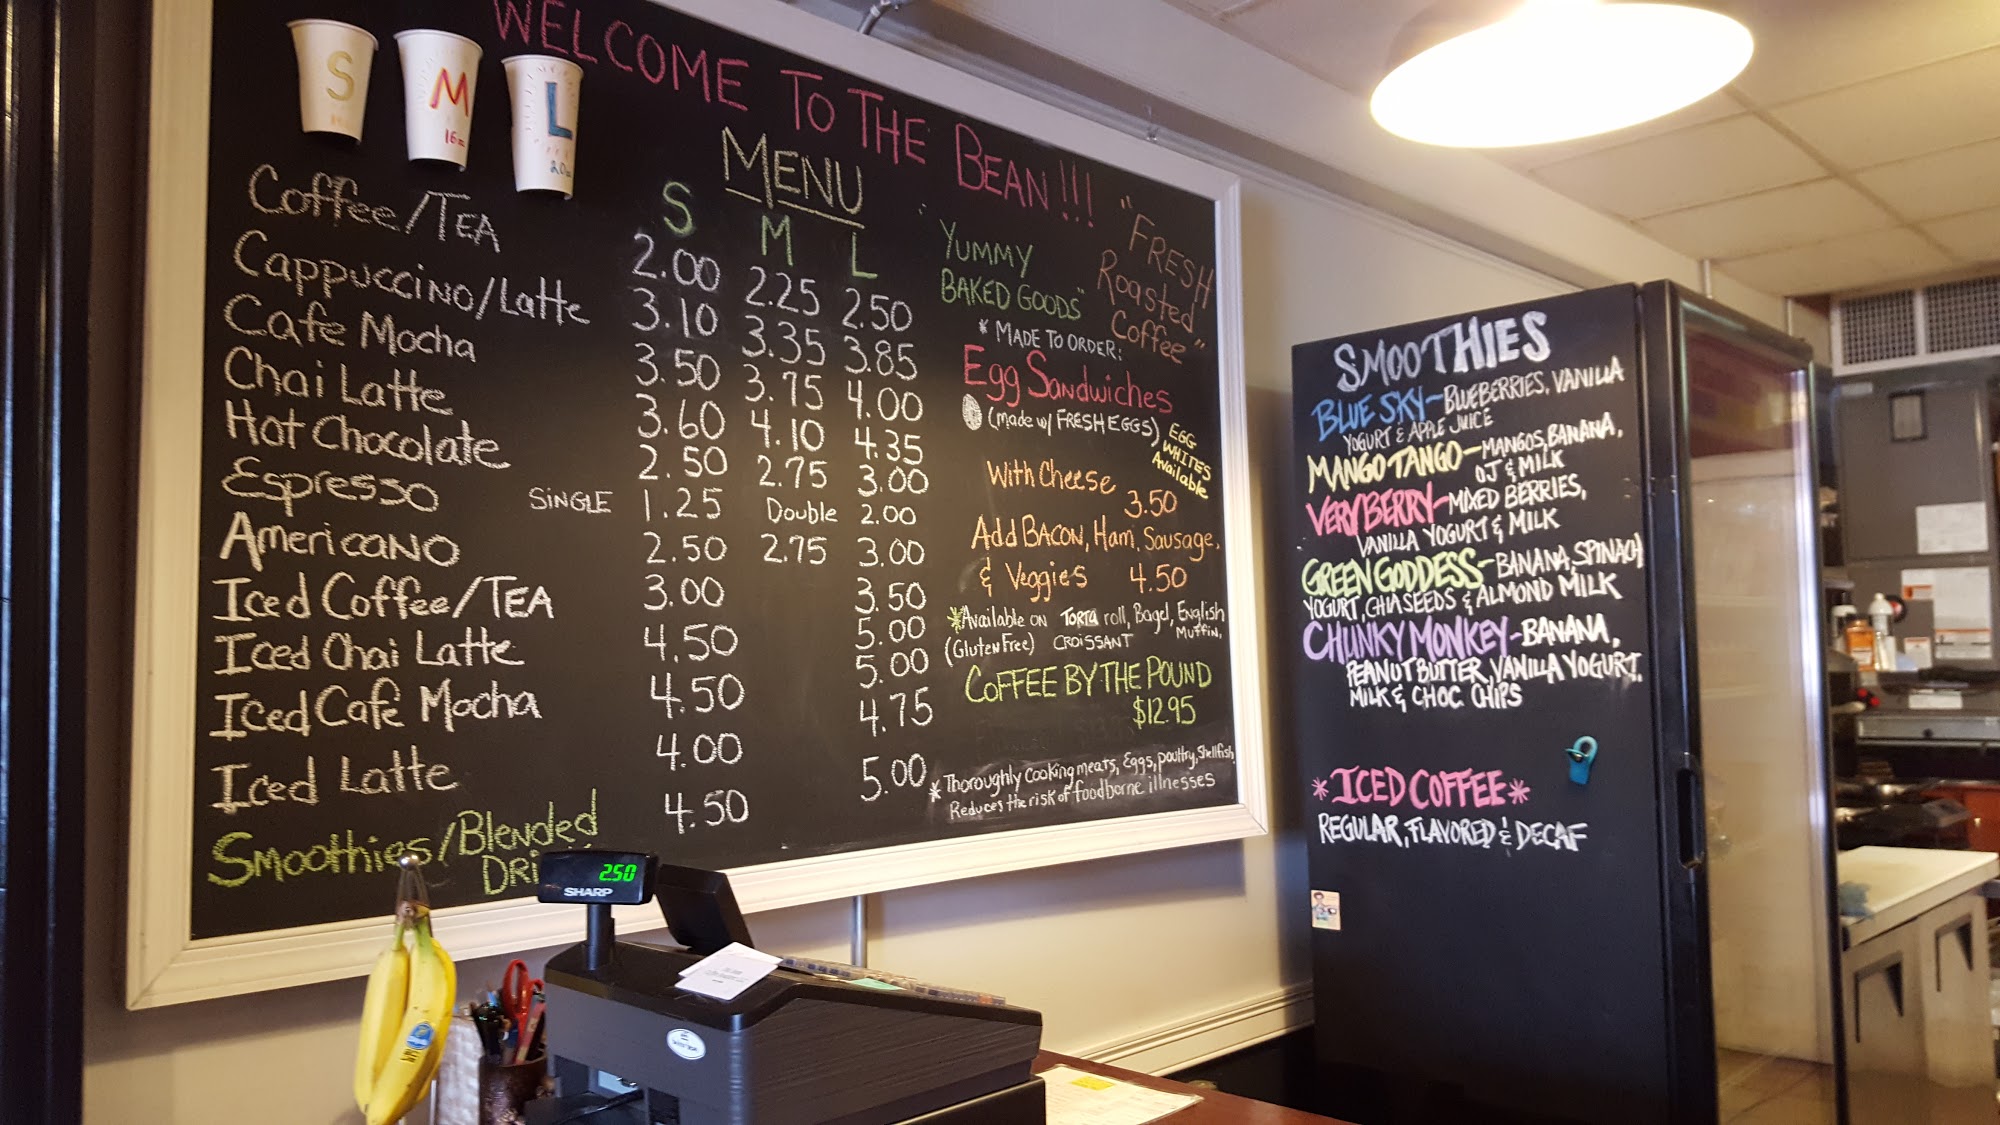 WELCOME TO THE BEAN!!!
S
M
16oz
L
20oz
MENU
S M L
Coffee/TEA 2.00 2.25 2.50
Cappuccino/Latte 3.10 3.35 3.85
Cafe Mocha 3.50 3.75 4.00
Chai Latte 3.60 4.10 4.35
Hot Chocolate 2.50 2.75 3.00
Espresso SINGLE 1.25 Double 2.00
Americano 2.50 2.75 3.00
Iced Coffee/TEA 3.00 3.50
Iced Chai Latte 4.50 5.00
Iced Café Mocha 4.50 5.00
Iced Latte 4.00 4.75
Smoothies/Blended 4.50 5.00
"YUMMY
BAKED GOODS"
"FRESH
Roasted
Coffee"
* MADE TO ORDER:
Egg Sandwiches
(made w/ FRESH EGGS)
EGG
WHITES
Available
With Cheese 3.50
Add BACON, Ham, Sausage,
& Veggies 4.50
*Available on TORTA roll, Bagel, English
Muffin,
(Gluten Free) CROISSANT
COFFEE BY THE POUND
$12.95
* Thoroughly cooking meats, Eggs, poultry, Shellfish
Reduces the risk of foodborne illnesses
SMOOTHIES
BLUE SKY-BLUEBERRIES, VANILLA
YOGURT & APPLE JUICE
MANGO TANGO-MANGOS, BANANA,
OJ & MILK
VERY BERRY-MIXED BERRIES,
VANILLA YOGURT & MILK
GREEN GODDESS-BANANA, SPINACH
YOGURT, CHIA SEEDS & ALMOND MILK
CHUNKY MONKEY-BANANA,
PEANUT BUTTER, VANILLA YOGURT.
MILK & CHOC. CHIPS
*ICED COFFEE*
REGULAR, FLAVORED & DECAF
2.50
SHARP